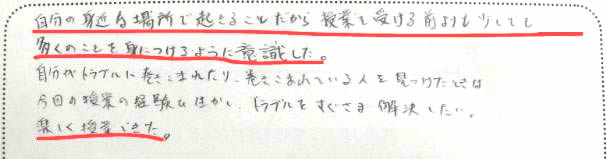 自分の身近な場所で起きることだから授業を受ける前よりも少しでも
多くのことを身につけるように意識した。
自分がトラブルに巻きこまれたり、巻きこまれている人を見つけたときは
今回の授業の経験を生かし、トラブルをすぐさま解決したい。
楽しく授業できた。